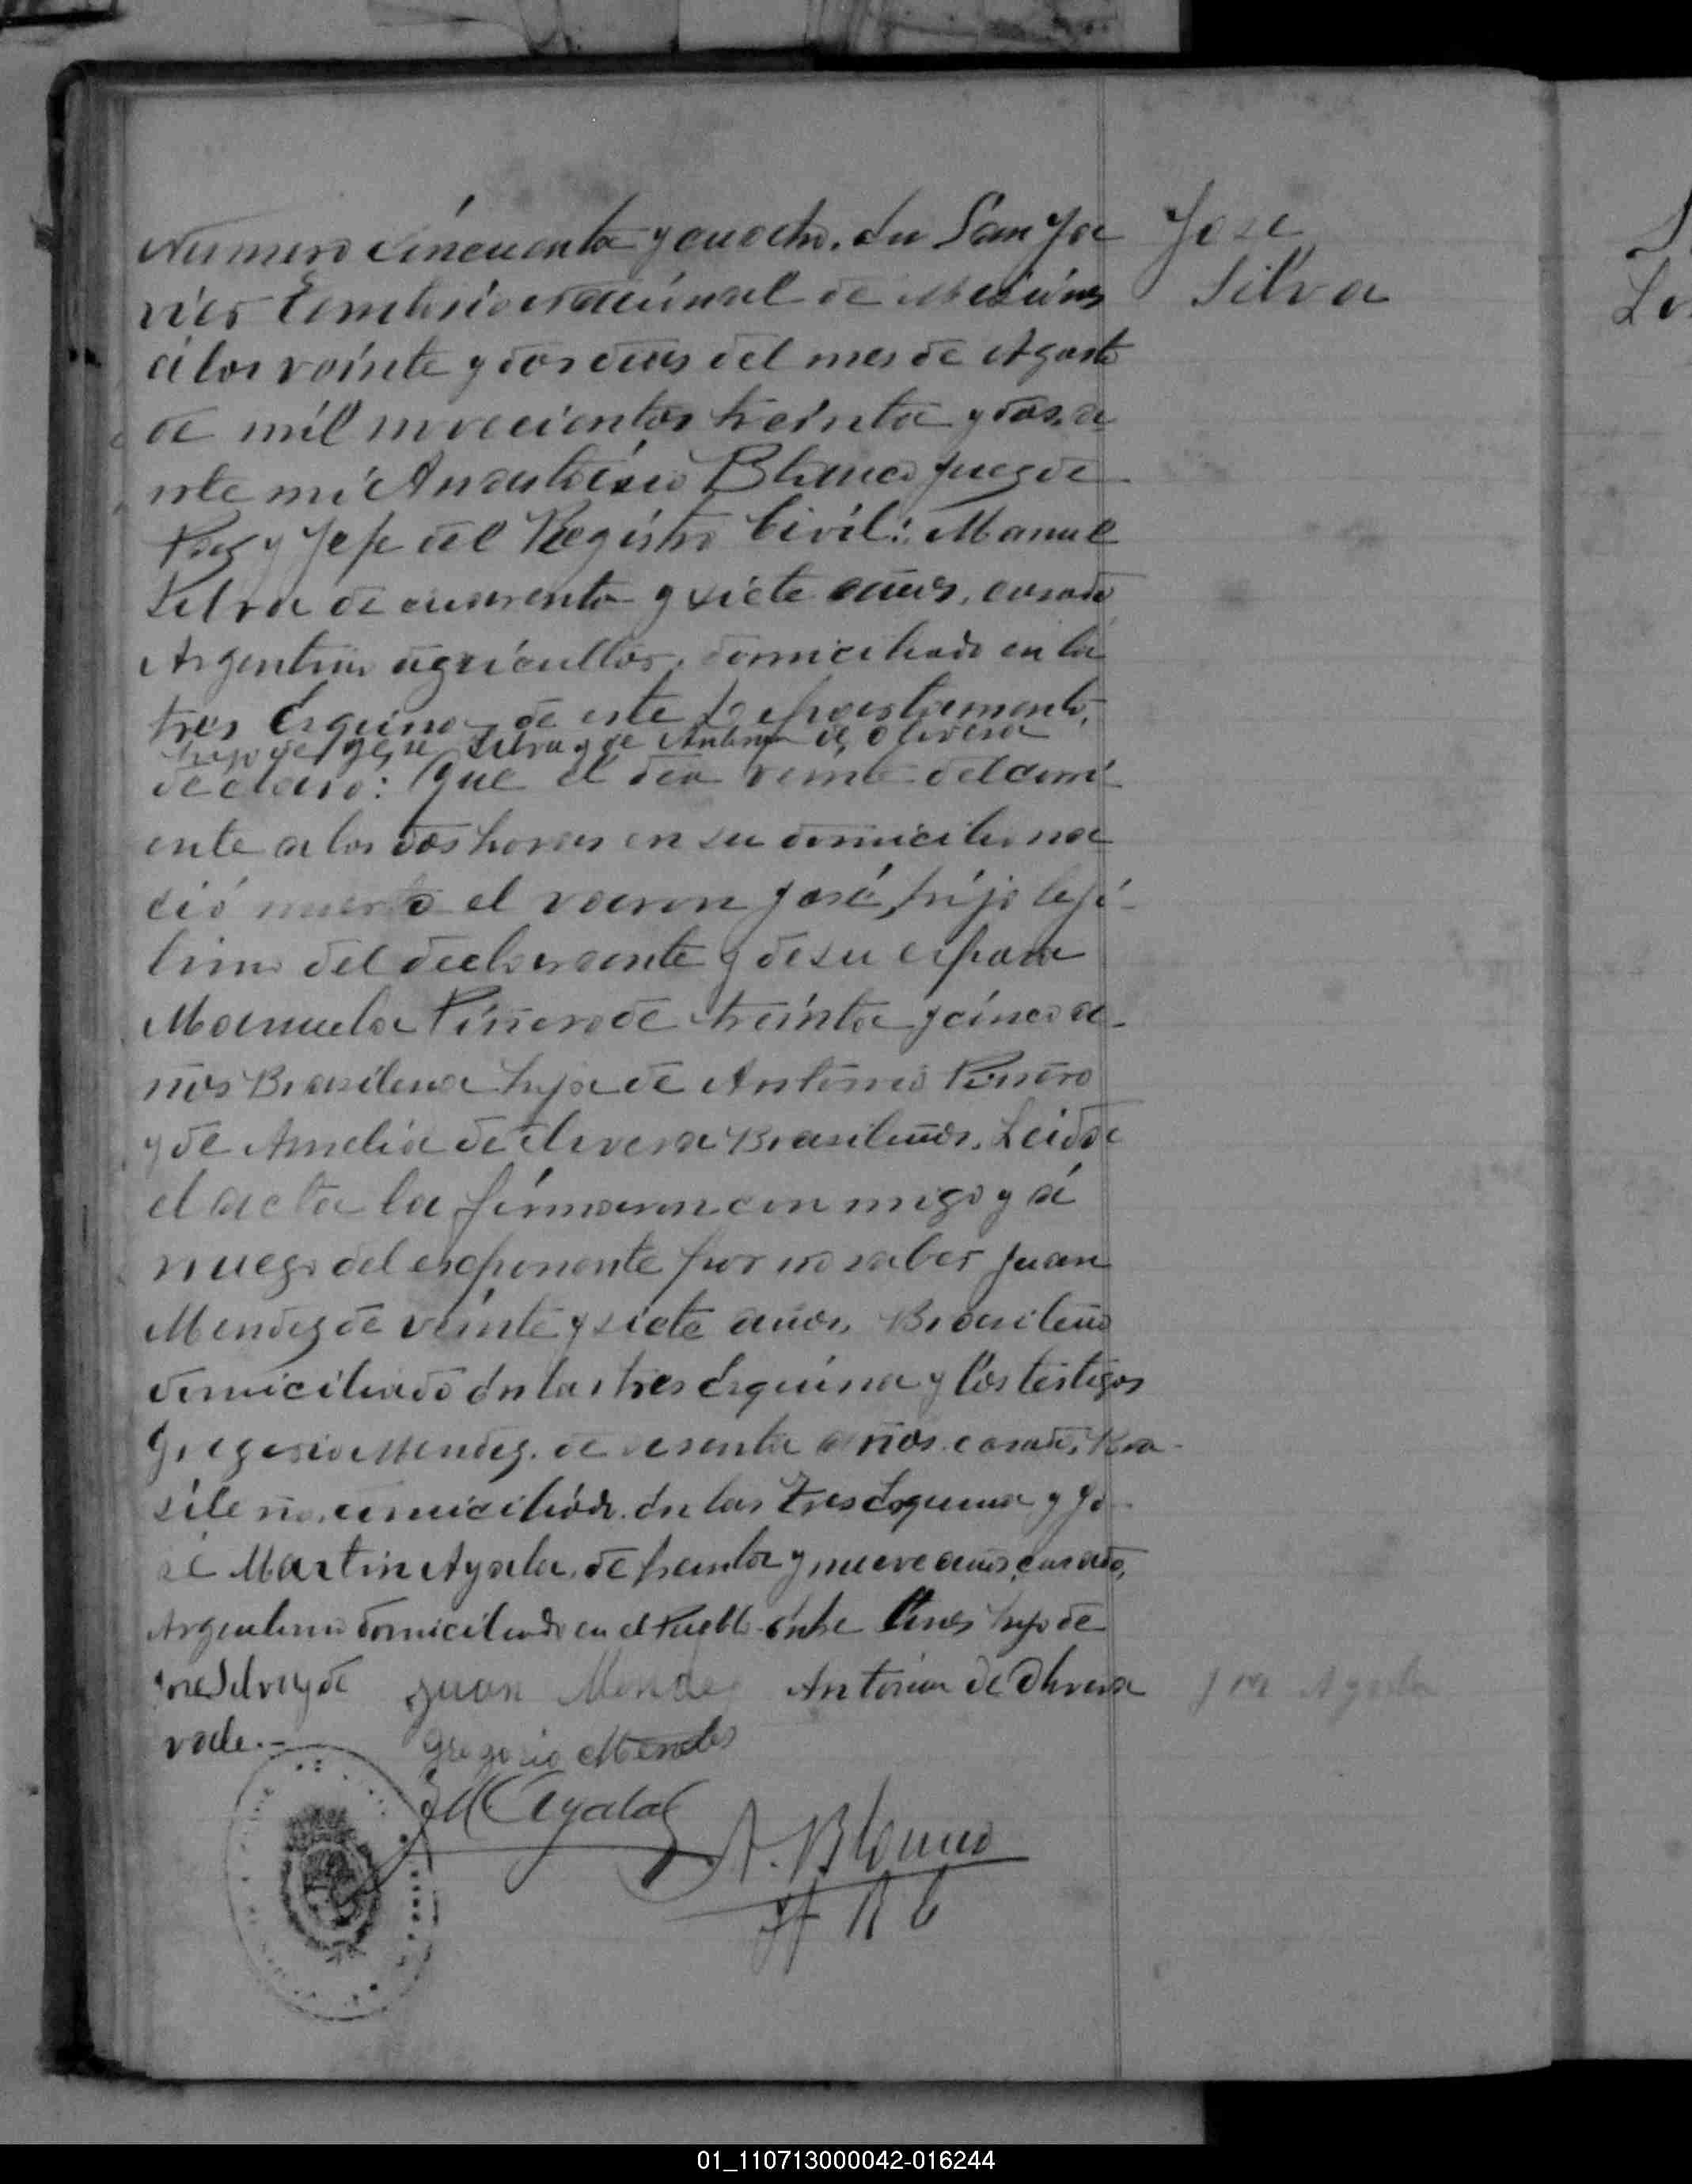 Numero cincuenta y cuatro. En San Ja
vier Territorio nacional de Misiones
á los veinte y dos dias del mes de Agosto
de mil novecientos treinta y dos, a
nte mi Anastasio Blanco Juez de
Paz y Jefe del Registro Civil: Manuel
Silva de cuarenta y siete años, casado
Argentino agricultor, domiciliado en las
tres Esquinas de este Departamento,
hijo de Jose Silva y de Antonia de Olivera
declaró: Que el dia veinte del corri
ente a las dos horas en su domicilio na
ció muerto el varon José, hijo leji
timo del declarante y de su esposa
Manuela Piñero de treinta y cinco a-
ños Brasilena hija de Antonio Piñero
y de Amelia de Olivera Brasileños. Leida
el acta la firmaron con migo y á
ruego del esponente por no saber Juan
Mendez de veinte y siete años, Brasileño
domiciliado en las tres Esquina y los testigos
Gregorio Mendez, de sesenta años, casado, Bra-
sileño, domiciliado en las Tres Esquina y Jo-
sé Martin Ayala, de treinta y nueve años, casado,
Argentino domiciliado en el Pueblo. entre lineas hijo de
Jose Silva y de Antonia de Olivera
vale.-
Juan Mendez
Gregorio Mendes
J M Ayala
A. Blanco
J R C
Jose
Silva
Ayala
01_110713000042-016244